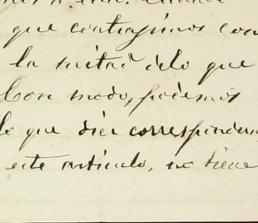 que contrajimos con
la mitad de lo que
Con modo, podemos
lo que dice corresponder
este artículo, no tiene